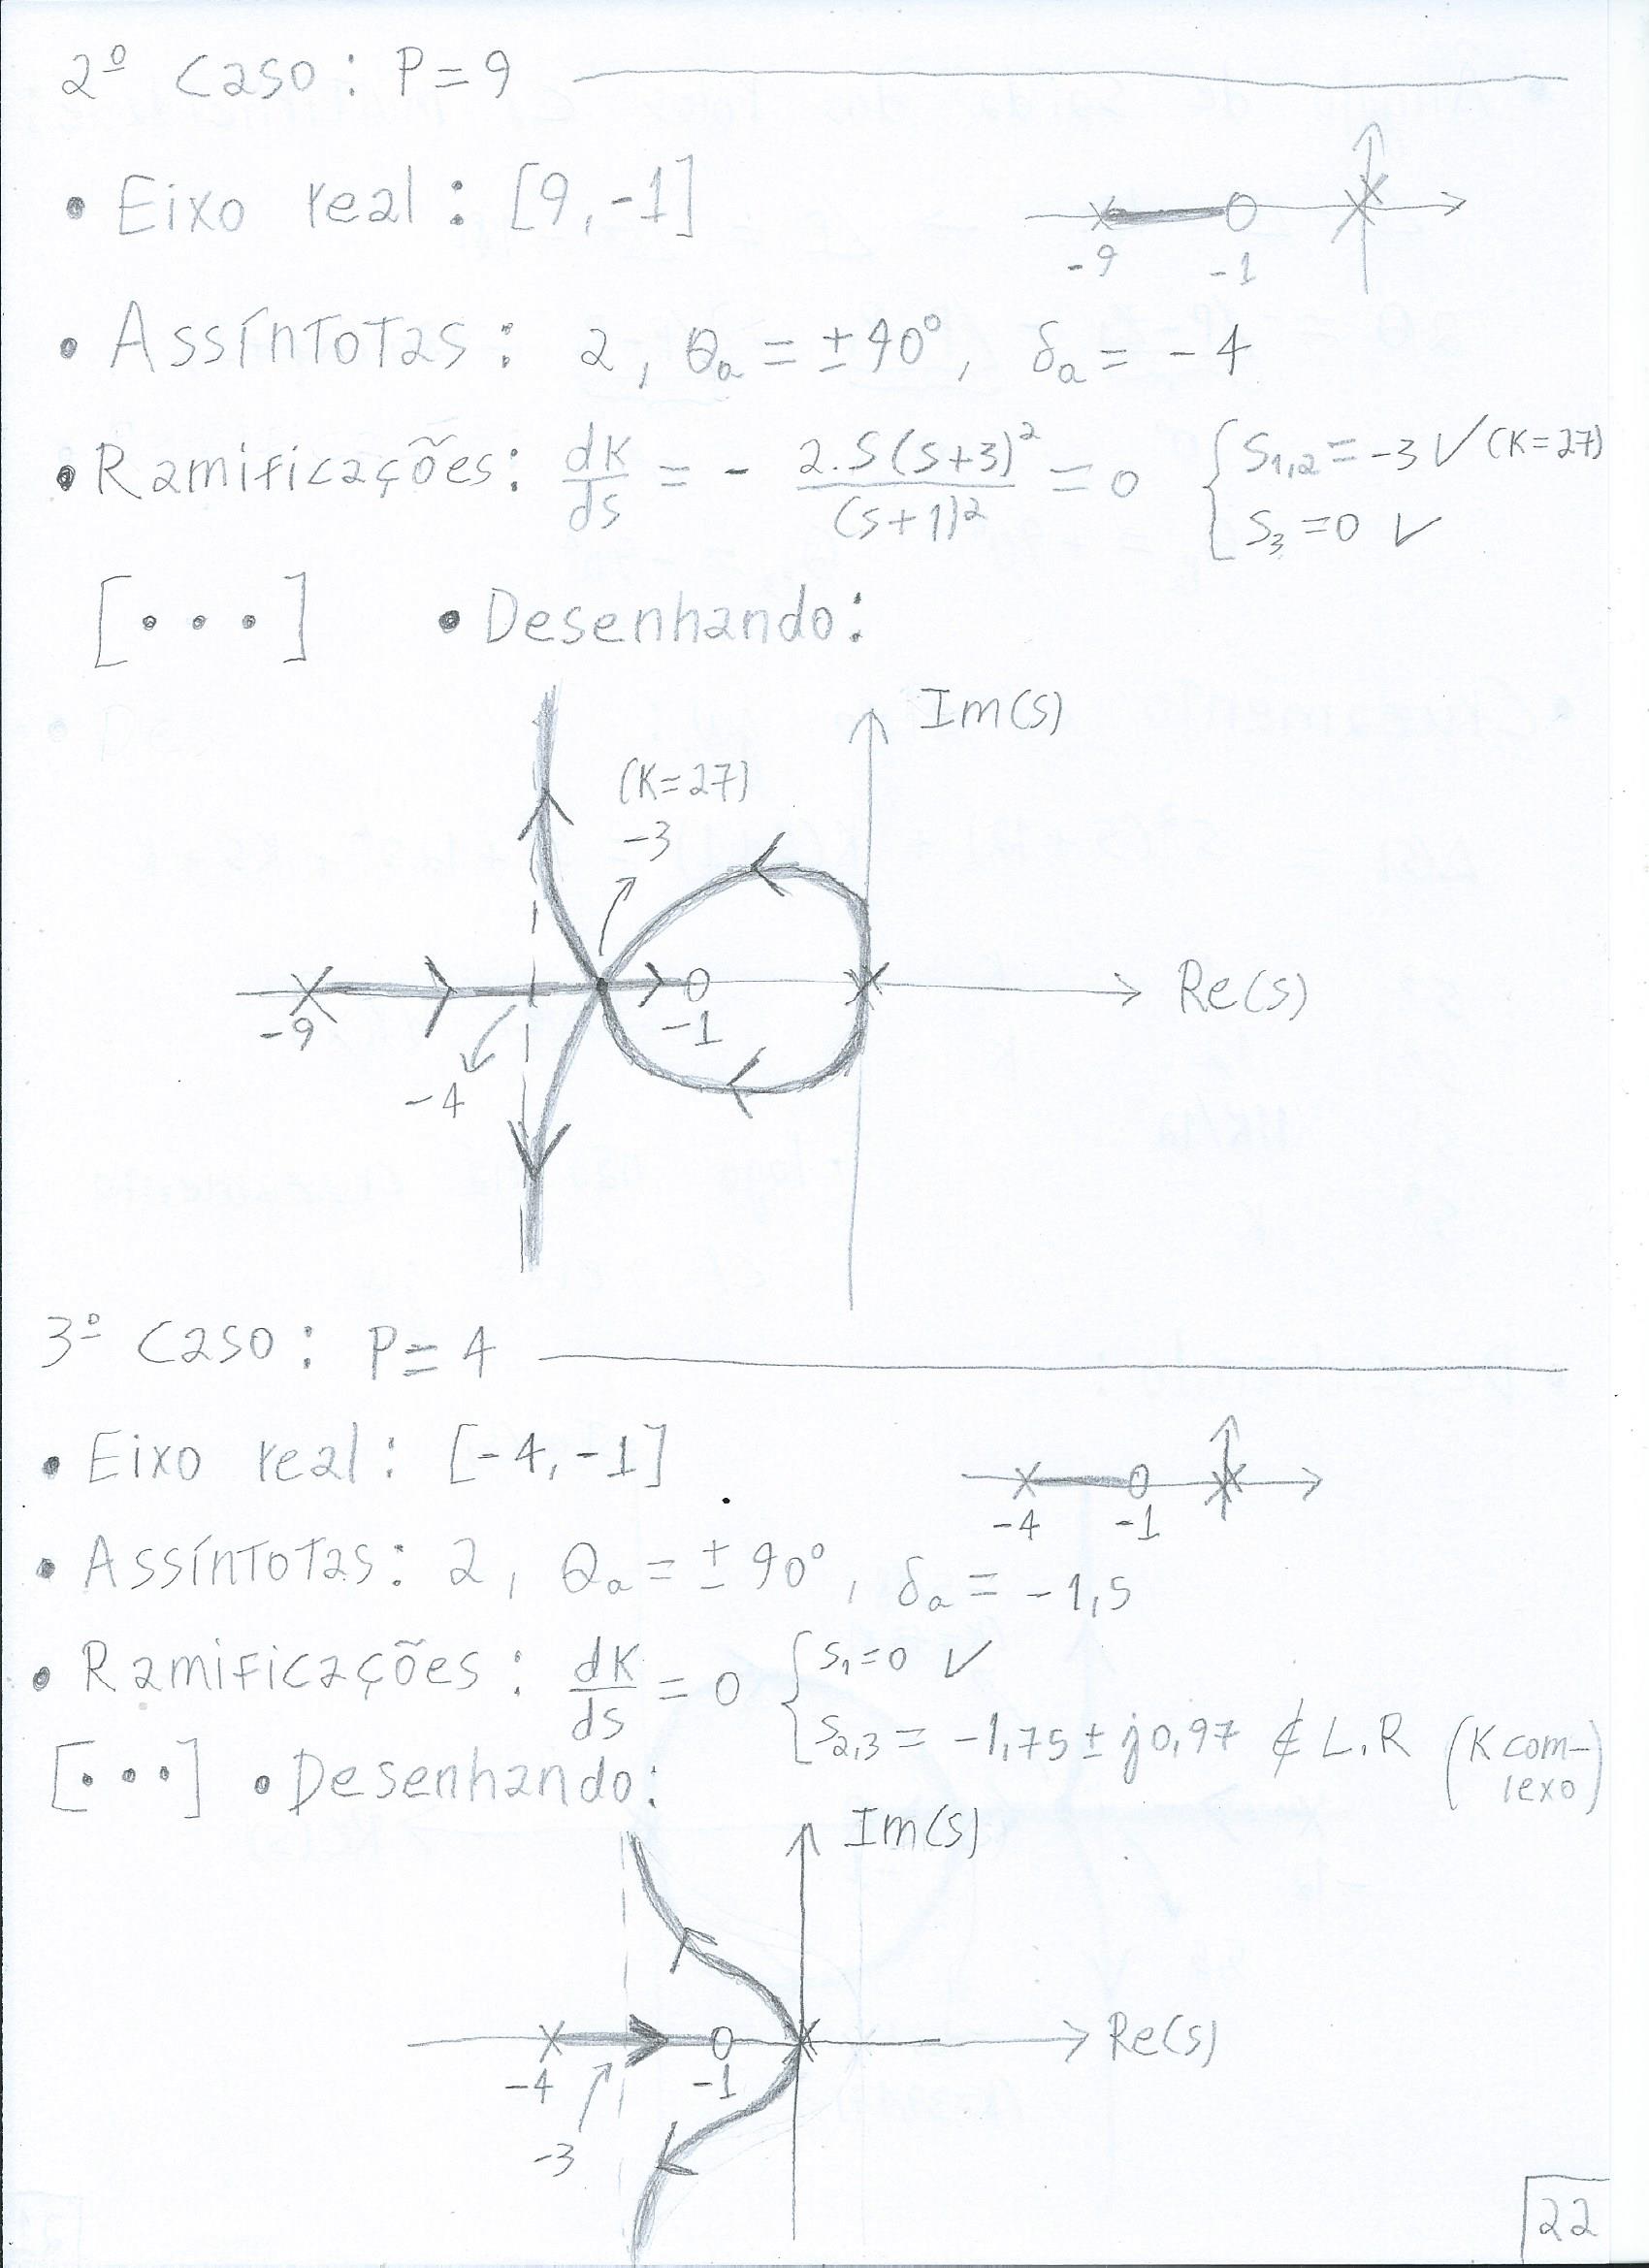 2º Caso: P=9
• Eixo real: [9,-1]
-9 -1
• Assíntotas: 2, θa = ±90°, δa = -4
• Ramificações: dK/ds = - 2.S(S+3)²/(S+1)² = 0 { S1,2 = -3 ✓ (K=27)
S3 = 0 ✓
[...] • Desenhando:
Im(s)
(K=27)
-3
Re(s)
-9 -1
-4
3º Caso: P=4
• Eixo real: [-4,-1]
-4 -1
• Assíntotas: 2, θa = ±90°, δa = -1,5
• Ramificações: dK/ds = 0 { S1=0 ✓
S2,3 = -1,75 ± j0,97 ∉ L.R (K com-
lexo)
[...] • Desenhando:
Im(s)
Re(s)
-4 -1
-3
22